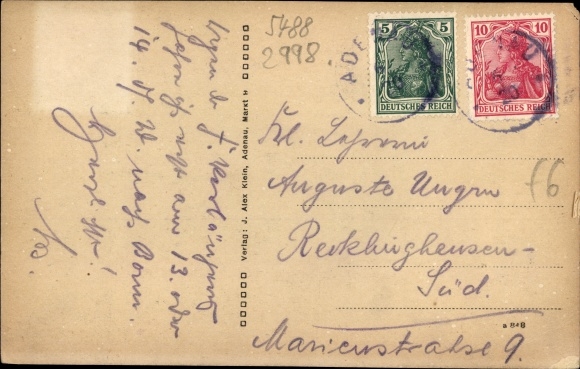 5488
2998
5 5
DEUTSCHES REICH
10 10
DEUTSCHES REICH
ADE
Frl.
Auguste Ungru
Recklinghausen-
Süd.
Marienstraße 9.
f6
a 848
Verlag: J. Alex Klein, Adenau, Markt
Wegen d.
fahre ich erst am 13. oder
14. d. M. nach Bonn.